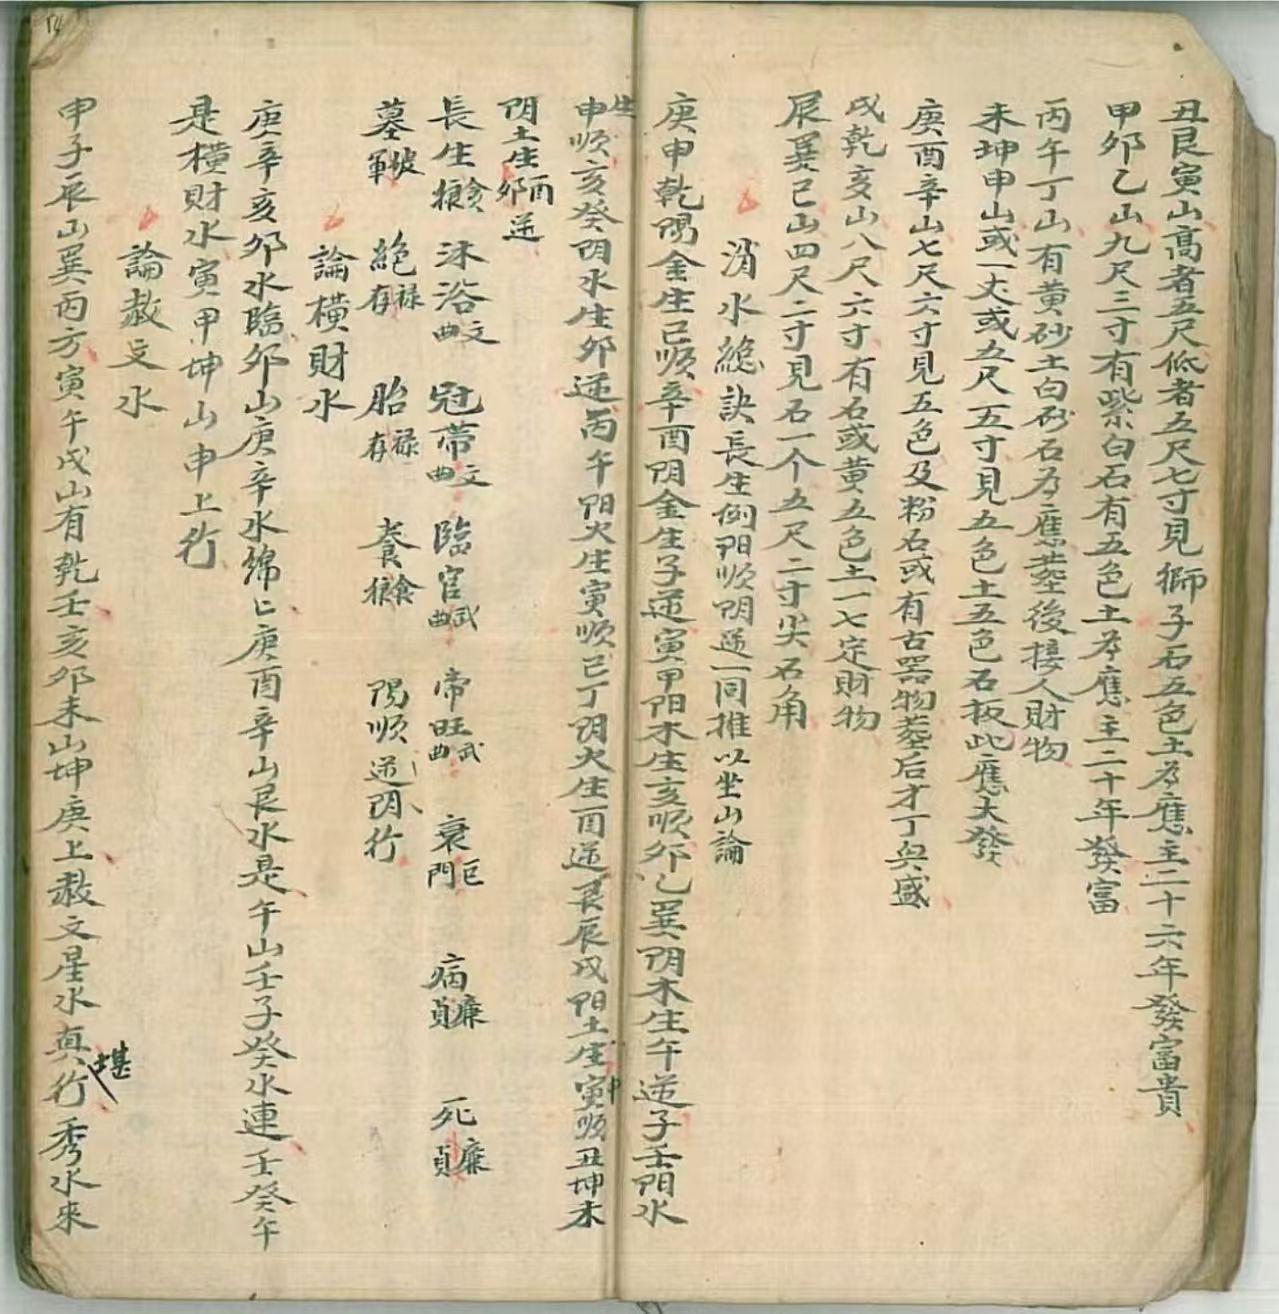 丑艮寅山高者五尺低者五尺七寸見獅子石五色土為應主二十六年發富貴
甲夘乙山九尺三寸有紫白石有五色土為應主二十年發富
丙午丁山有黄砂土白砂石為應塟後接人財物
未坤申山或一丈或五尺五寸見五色土五色石板此應大發
庚酉辛山七尺六寸見五色及粉石或有古器物塟后才丁興盛
戌乾亥山八尺六寸有石或黄五色土一七定財物
辰巽巳山四尺二寸見石一个五尺二寸尖石角
消水總訣長生例阳順阴逆一同推以坐山論
庚申乾陽金生巳順辛酉阴金生子逆寅甲阳木生亥順夘乙巽阴木生午逆子壬阳水
生申順亥癸阴水生夘逆丙午阳火生寅順巳丁阴火生酉逆艮辰戌阳土生寅申順丑坤未
阴土生夘酉逆
長生貪狼 沐浴文曲 冠帶文曲 臨官武曲 帝旺武曲 衰巨門 病廉貞 死廉貞
墓破軍 絕祿存 胎祿存 養貪狼 陽順逆阴行
論橫財水
庚辛亥夘水臨夘山庚辛水綿匕庚酉辛山艮水是午山壬子癸水連壬癸午
是橫財水寅甲坤山申上行
論赦文水
申子辰山巽丙方寅午戌山有乾壬亥夘未山坤庚上赦文星水真堪行秀水來
14